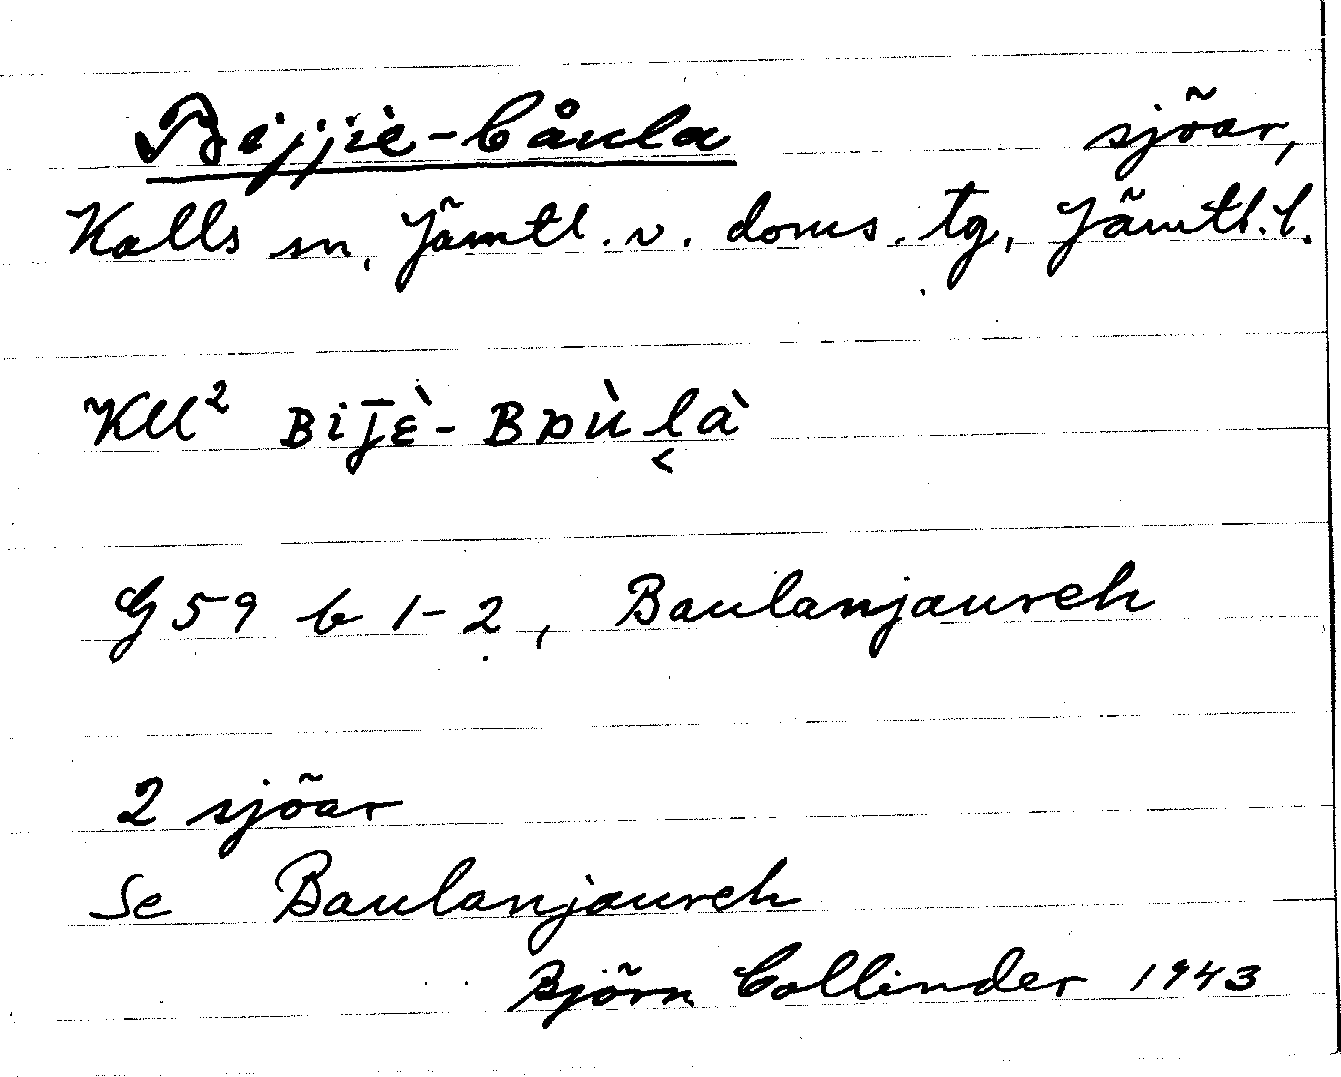 Bijjie-båula sjöar,
Kalls sn, Jämtl. v. doms. tg, Jämtl. l.
KU² BiJ̄ɛ̀-Bɒùl̬à
G 59 b 1-2, Baulanjaureh
2 sjöar
Se Baulanjaureh
Björn Collinder 1943